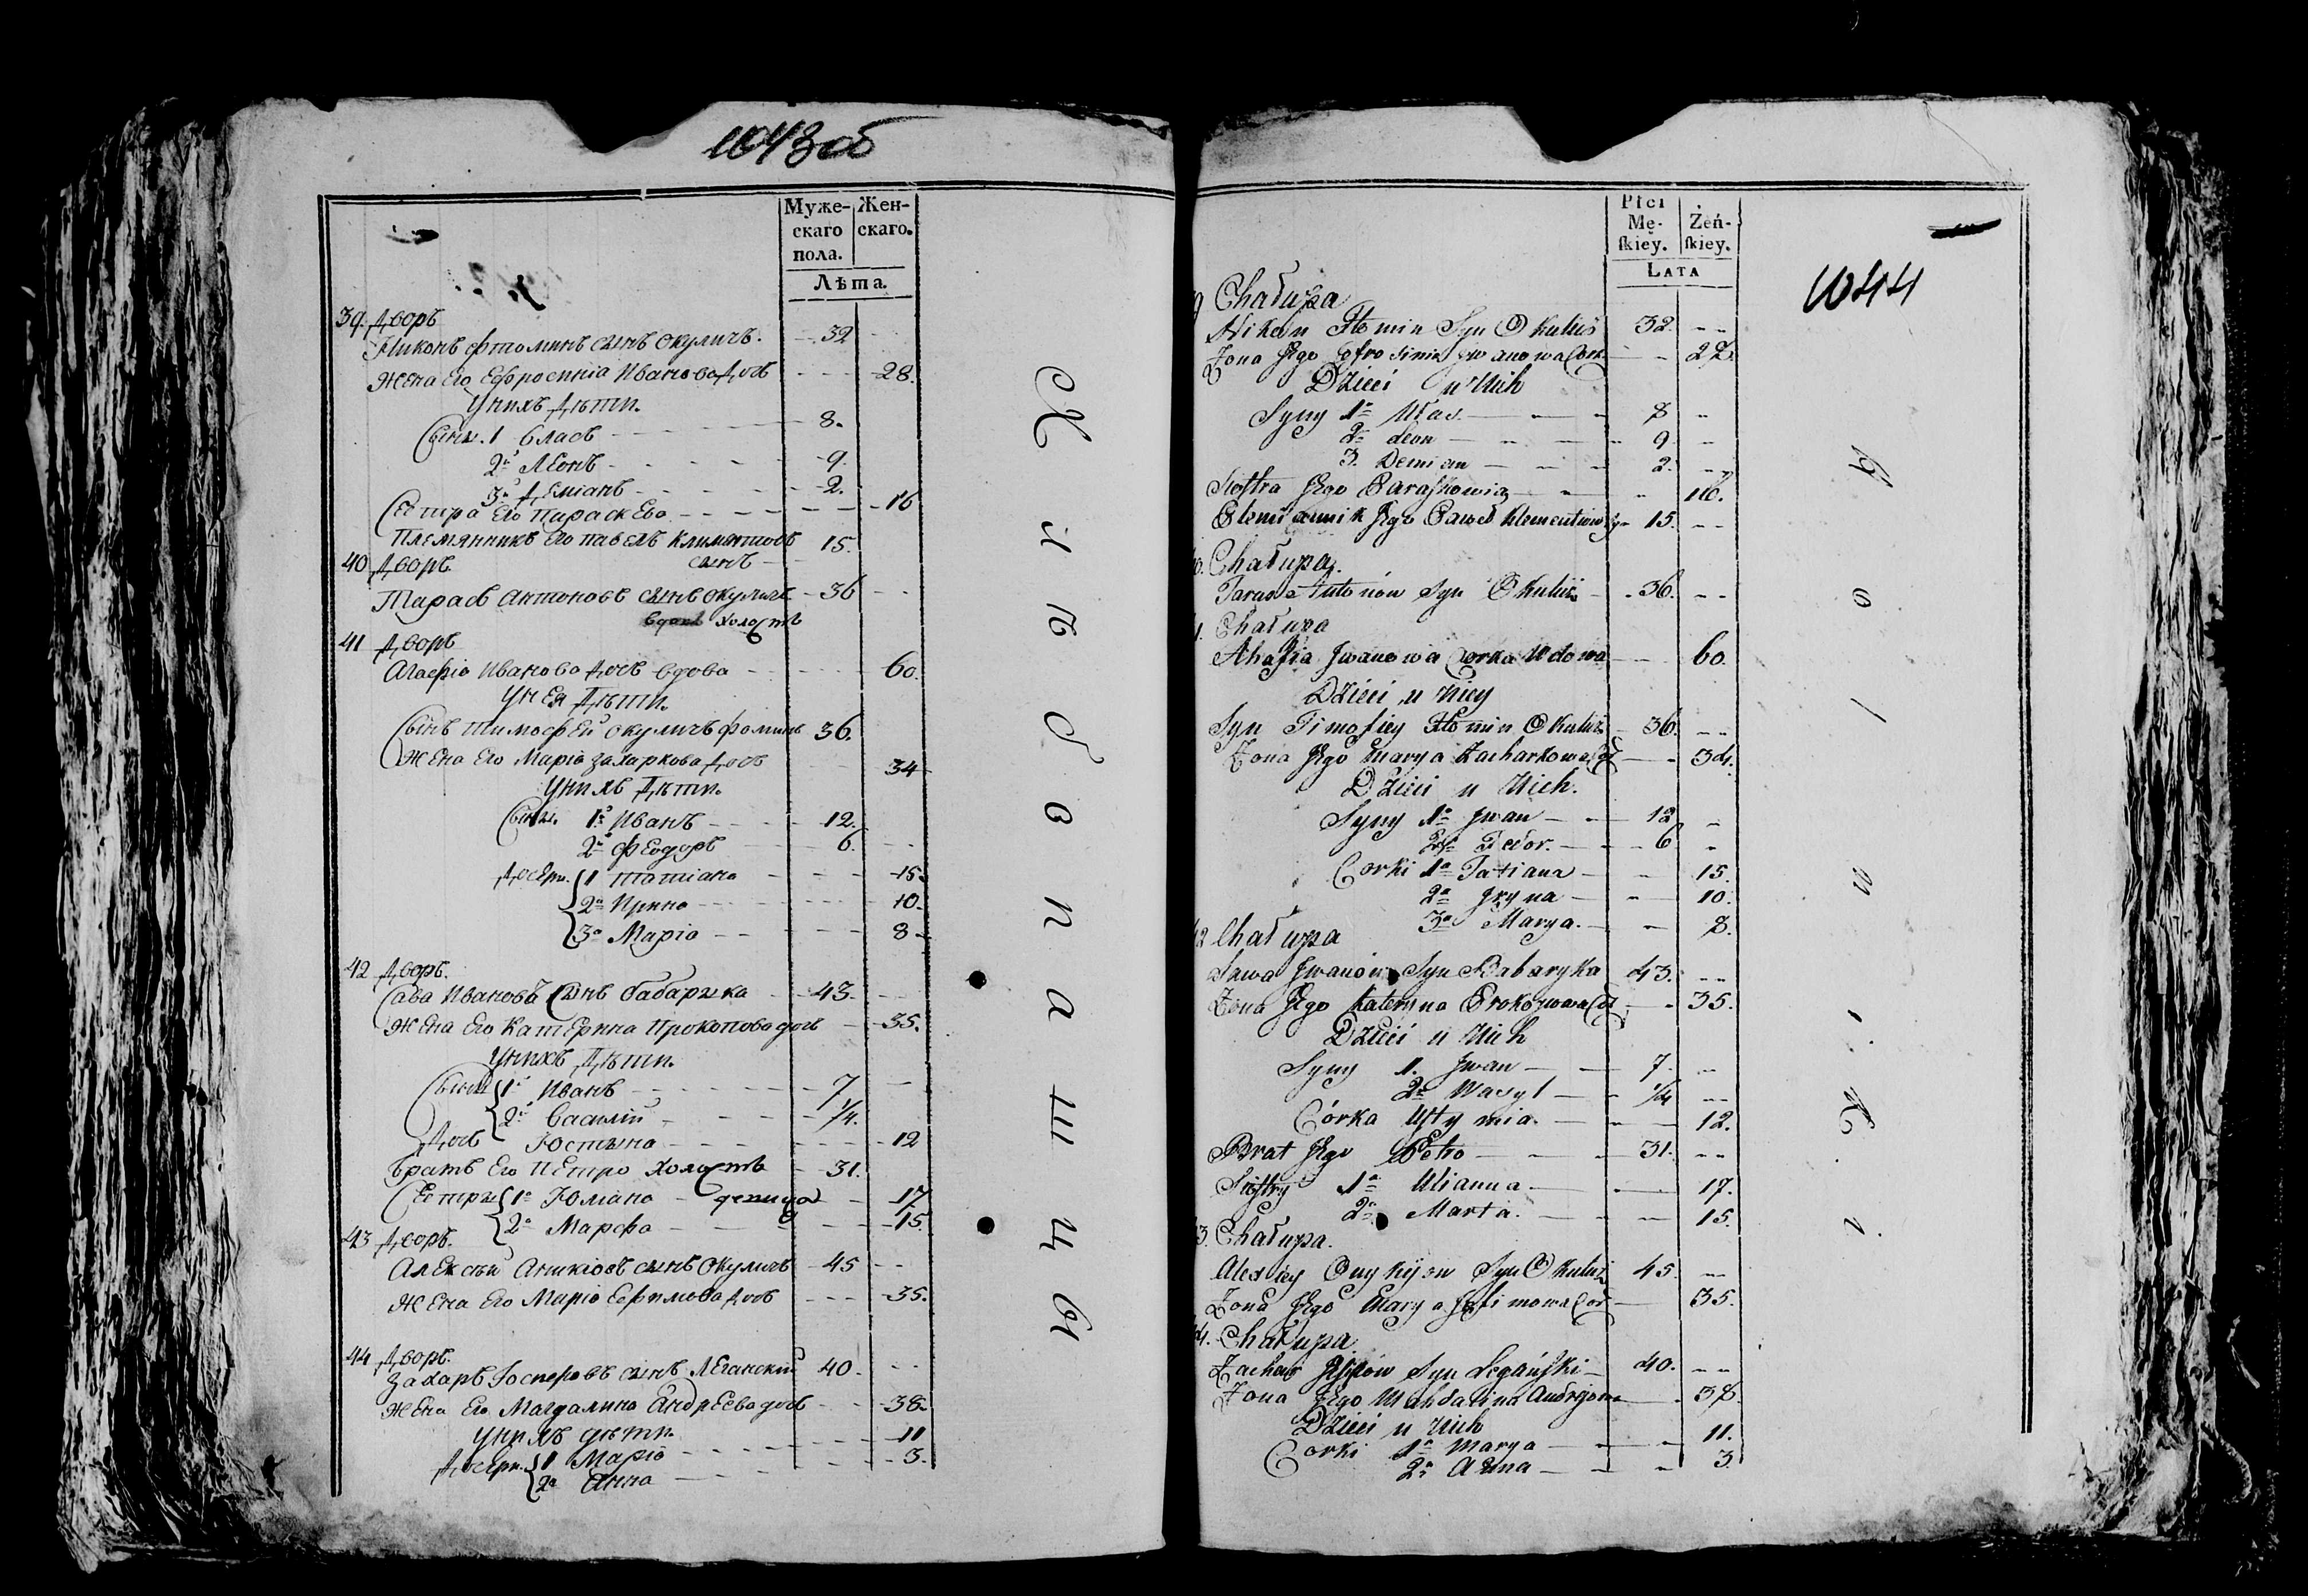 1043 об
Муже-
скаго
пола.
Жен-
скаго.
Лѣта.
39. Дворъ
Никонъ Фтоминъ сынъ Окуличъ. 32
Жена Его Ефросиніа Иванова дочь 28.
У нихъ Дѣти.
Сыны. 1 Власъ 8.
2й Леонъ 9.
3й Деміанъ 2.
Сестра Его Параскева 16
Племянникъ Его павелъ Климентовъ 15.
сынъ
40 Дворъ.
Тарасъ Антоновъ сынъ Окуличъ 36
холостъ
41 Дворъ
Агафіа Иванова дочь вдова 60.
У нея Дѣти.
Сынъ Тимофей Окуличъ фоминъ 36.
Жена Его Маріа Захаркова дочь 34
У нихъ Дѣти.
Сыны. 1й Иванъ 12.
2й Феодоръ 6.
Дочери. 1 Татіана 15.
2а Ирина 10.
3а Маріа 8
42 Дворъ.
Сава Ивановъ Сынъ бабарыка 43.
Жена Его Катерина Прокопова дочь 35.
У нихъ Дѣти.
Сыны 1й Иванъ 7.
2й Василій 1/4.
Дочь Юстына 12
Братъ Его Петро холостъ 31.
Сестры 1а Юліана девица 17
2а Марфа 15.
43 Дворъ.
Алексѣй Аникіовъ сынъ Окуличъ 45
Жена Его Маріа Ефимова дочь 35.
44 Дворъ.
Захаръ Іосперовъ сынъ Леганскій 40.
Жена Его Магдалина Андреева дочь 38.
У нихъ дѣти. 11
Дочери. 1 Маріа 3.
2а Анна
Хлѣбопашцы
Płci
Mę-
ſkiey.
Żeń-
ſkiey.
Lata
1044
9 Chałupa
Nikon Ftomin Syn Okulicz 32.
Żona Jego Eofrosinia Jwanowa Cork. 28.
Dzieci u Nich
Syny 1o Ułas. 8
2o Leon 9
3. Demian 2.
Siostra Jego Paraskowia 16.
Plemiannik Jego Paweł Klementiow Sy 15.
0. Chałupa.
Taras Antonów Syn Okulicz 36.
1. Chałupa
Ahafia Jwanowa Corka Wdowa 60.
Dzieci u Niey
Syn Timofiey Ftomin Okulicz 36.
Żona Jego Marya Zacharkowa Co 34.
Dzieci u Nich.
Syny 1o Jwan 12
2o Fedor. 6
Corki 1a Tatiana 15.
2a Jryna 10.
3a Marya. 8.
2 Chałupa
Sawa Jwanów Syn Babaryka 43.
Żona Jego Kateryna Prokopowa Co 35.
Dzieci u Nich
Syny 1. Jwan 7.
2o Wasyl 1/4
Córka Ustymia. 12.
Brat Jego Petro 31.
Siostry 1a Ulianna 17.
2a Marta. 15.
3. Chałupa.
Alexiey Onykijow Syn Okulicz 45.
Żona Jego Marya Jafimowa Cor 35.
4. Chałupa
Zachar Jesipów Syn Legański 40.
Żona Jego Mahdalina Andrijowa 38.
Dzieci u Nich 11.
Corki 1a Marya 3.
2a Anna
Rolniki.